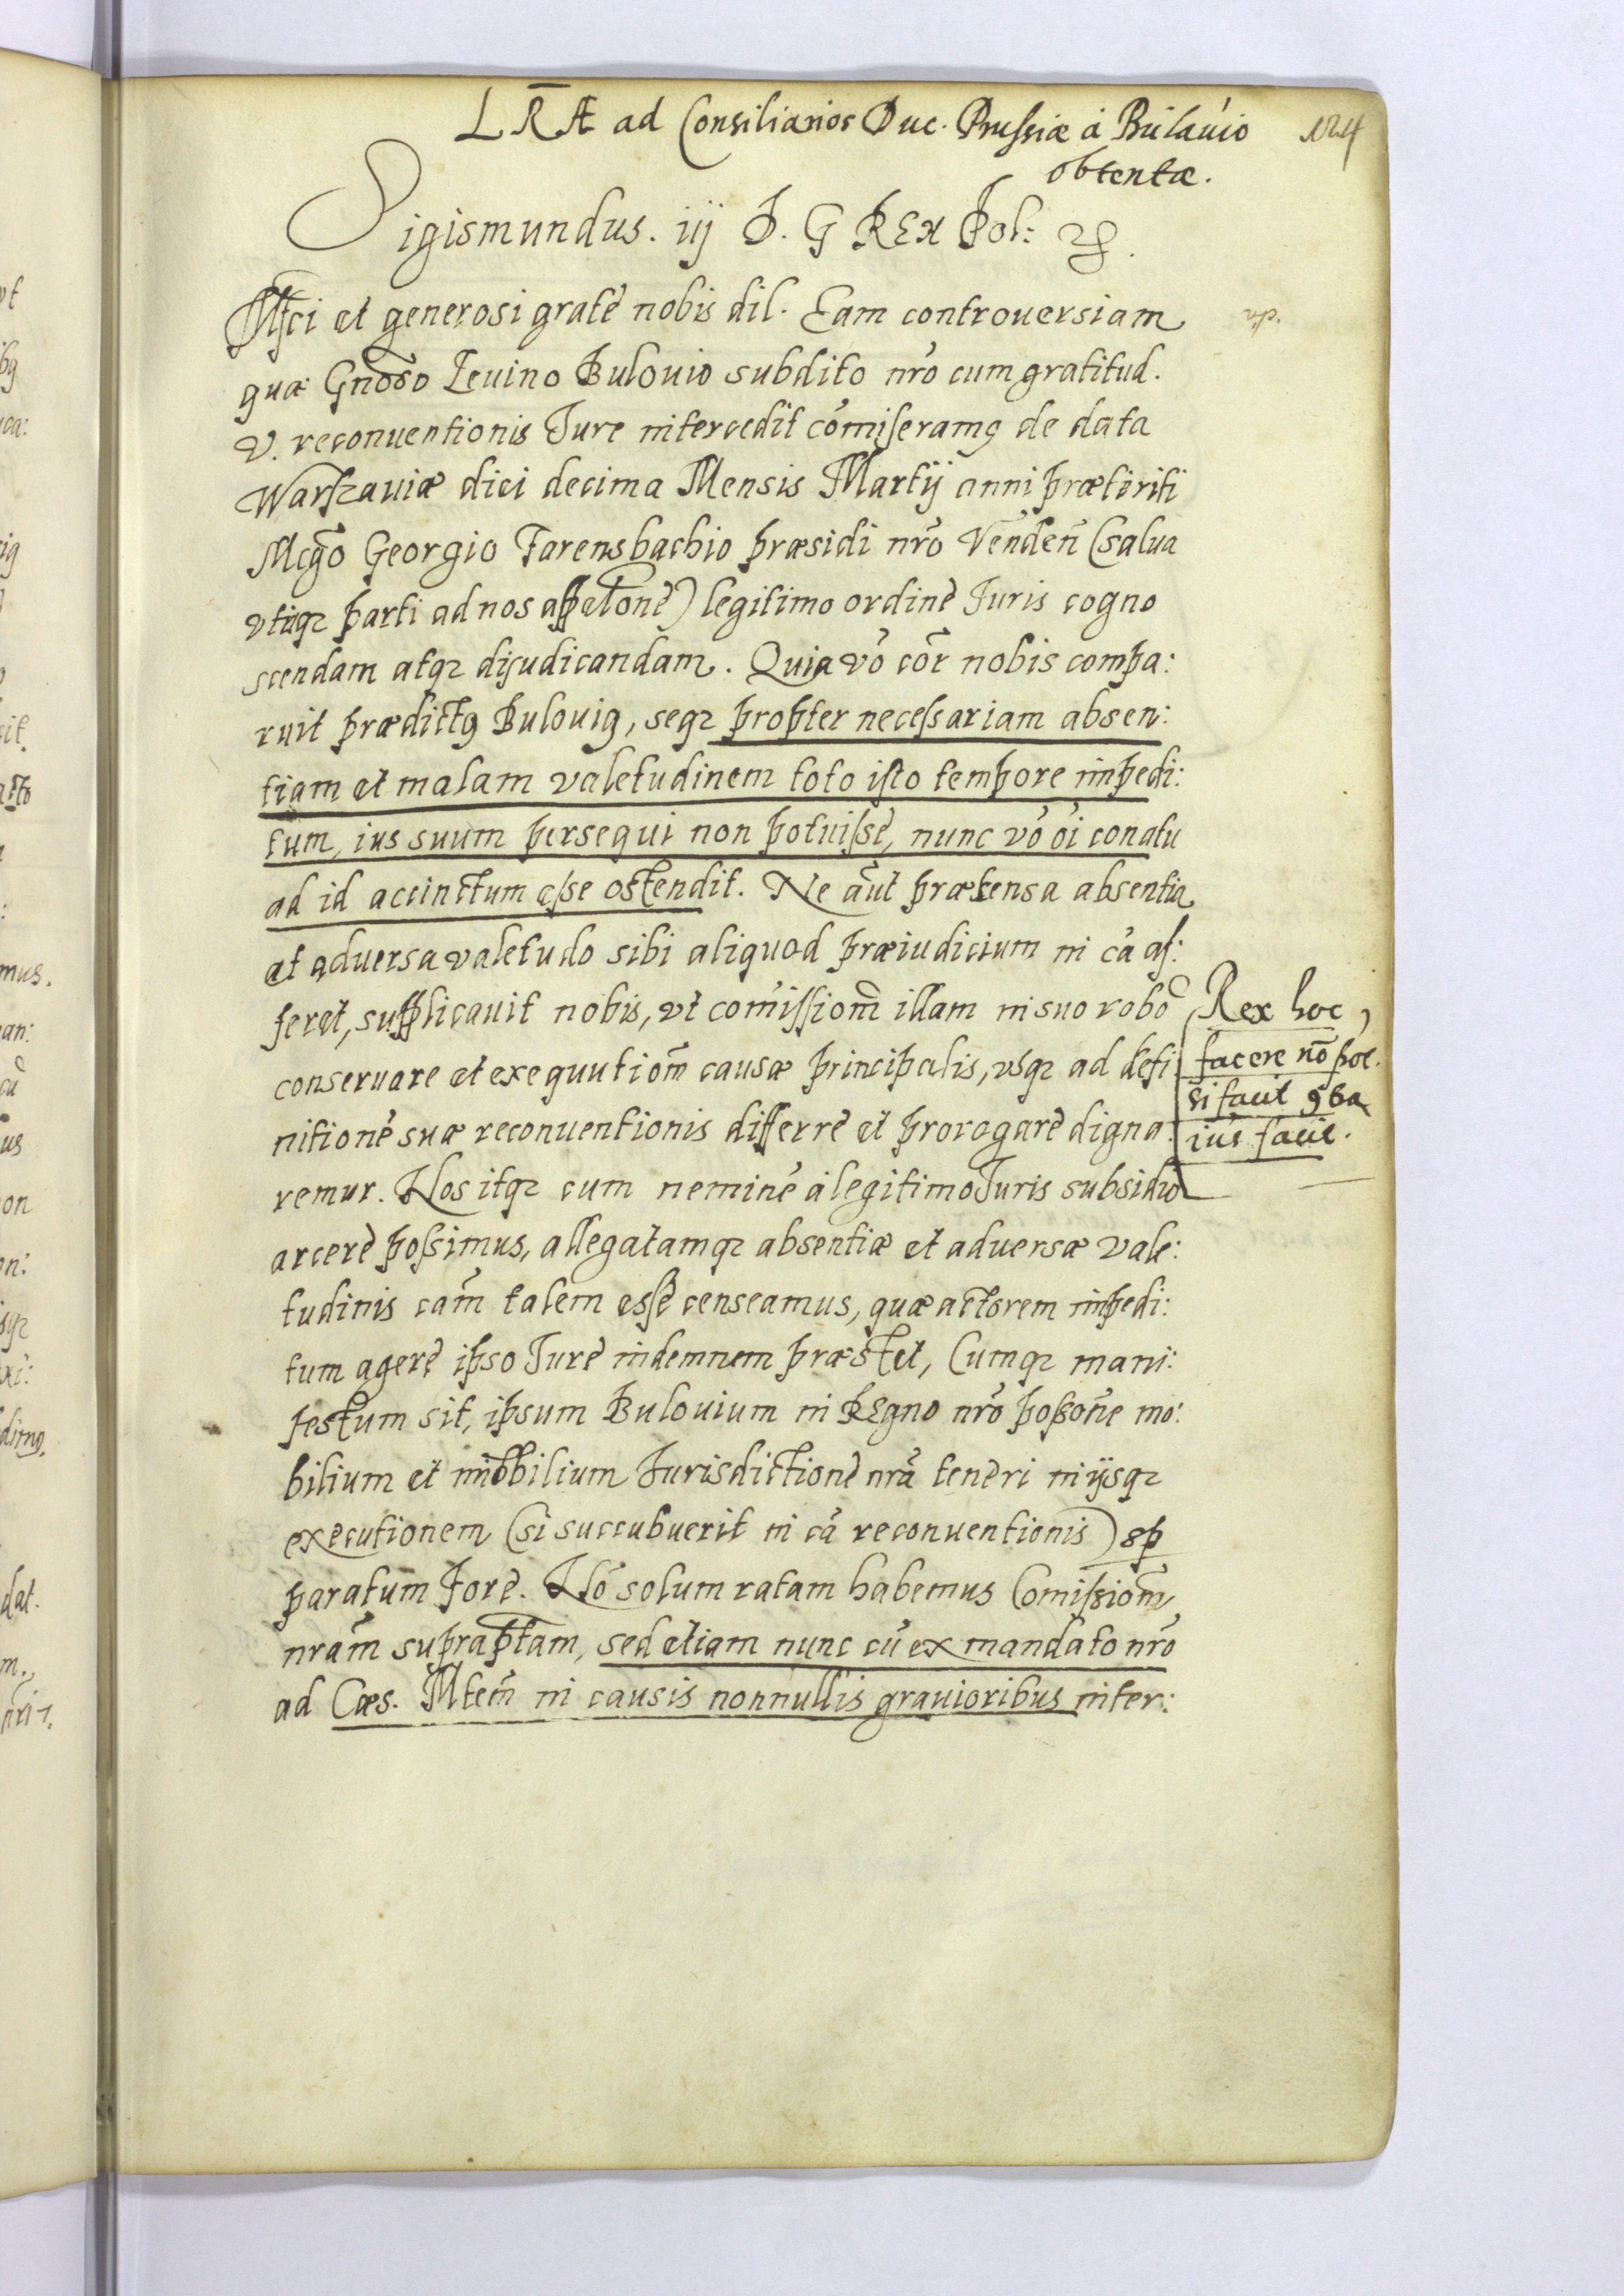 LRÆ ad Consiliarios Duc. Prussiæ à Búlaúio 124
obtentæ.
Sigismundus. iij D. G REX Pol: ꝛc.
Mfci et generosi grate nobis dil. Eam controuersiam
quæ Gnoso Leuino Bulouio subdito nrõ cum gratitud.
V. reconuentionis Jure intercedit cõmiseramꝰ de data
Warszauiæ diei decima Mensis Martij anni præteriti
Mcgõ Georgio Farensbachio præsidi nrõ Venden̄ (salua
vtiqꝫ parti ad nos appelõne) legitimo ordine Juris cogno
scendam atqꝫ dijudicandam. Quia võ cõr nobis compa:
ruit prædictꝰ Bulouiꝰ, seqꝫ propter necessariam absen:
tiam et malam valetudinem toto isto tempore impedi:
tum, ius suum persequi non potuisse, nunc võ õi conatu
ad id accinctum esse ostendit. Ne aũt prætensa absentia
et aduersa valetudo sibi aliquod præiudicium in cã af:
feret, supplicauit nobis, vt comissiom̃ illam in suo robõ
conseruare et exequutiom̃ causæ principalis, vsqꝫ ad defi
nitionẽ suæ reconuentionis differre et prorogare digna:
remur. Nos itqꝫ cum neminẽ à legitimo Juris subsidio
arcere possimus, allegatamqꝫ absentiæ et aduersæ vale:
tudinis cam̃ talem esse censeamus, quæ actorem impedi:
tum agere ipso Jure indemnem præstet, Cumqꝫ mani:
festum sit, ipsum Bulouium in REgno nrõ possoñe mo:
bilium et im̃obilium Jurisdictione nrã teneri in ijsqꝫ
executionem (si succubuerit in cã reconuentionis) sp
paratum fore. Nõ solum ratam habemus Comissiom̃
nram̃ supraptam, sed etiam nunc cũ ex mandato nrõ
ad Cæs. Mtem̃ in causis nonnullis grauioribus inter:
Rex hoc
facere nõ pot.
si facit 9ͭͬa
iús facit.